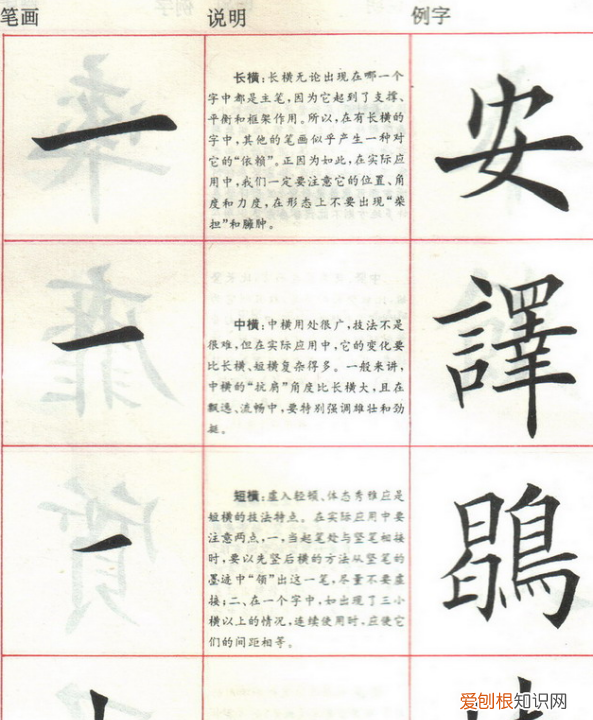 笔画 说明 例字
一
长横:长横无论出现在哪一个
字中都是主笔,因为它起到了支撑、
平衡和框架作用。所以,在有长横的
字中,其他的笔画似乎产生一种对
它的“依赖”。正因为如此,在实际应
用中,我们一定要注意它的位置、角
度和力度,在形态上不要出现“柴
担”和臃肿。
安
一
中横:中横用处很广,技法不是
很难,但在实际应用中,它的变化要
比长横、短横复杂得多。一般来讲,
中横的“抗肩”角度比长横大,且在
飘逸、流畅中,要特别强调雄壮和劲
挺。
譯
一
短横:虚入轻顿、体态秀雅应是
短横的技法特点。在实际应用中要
注意两点,一,当起笔处与竖笔相接
时,要以先竖后横的方法从竖笔的
墨迹中“领”出这一笔,尽量不要虚
接;二、在一个字中,如出现了三小
横以上的情况,连续使用时,应使它
们的间距相等。
爱刨根知识网